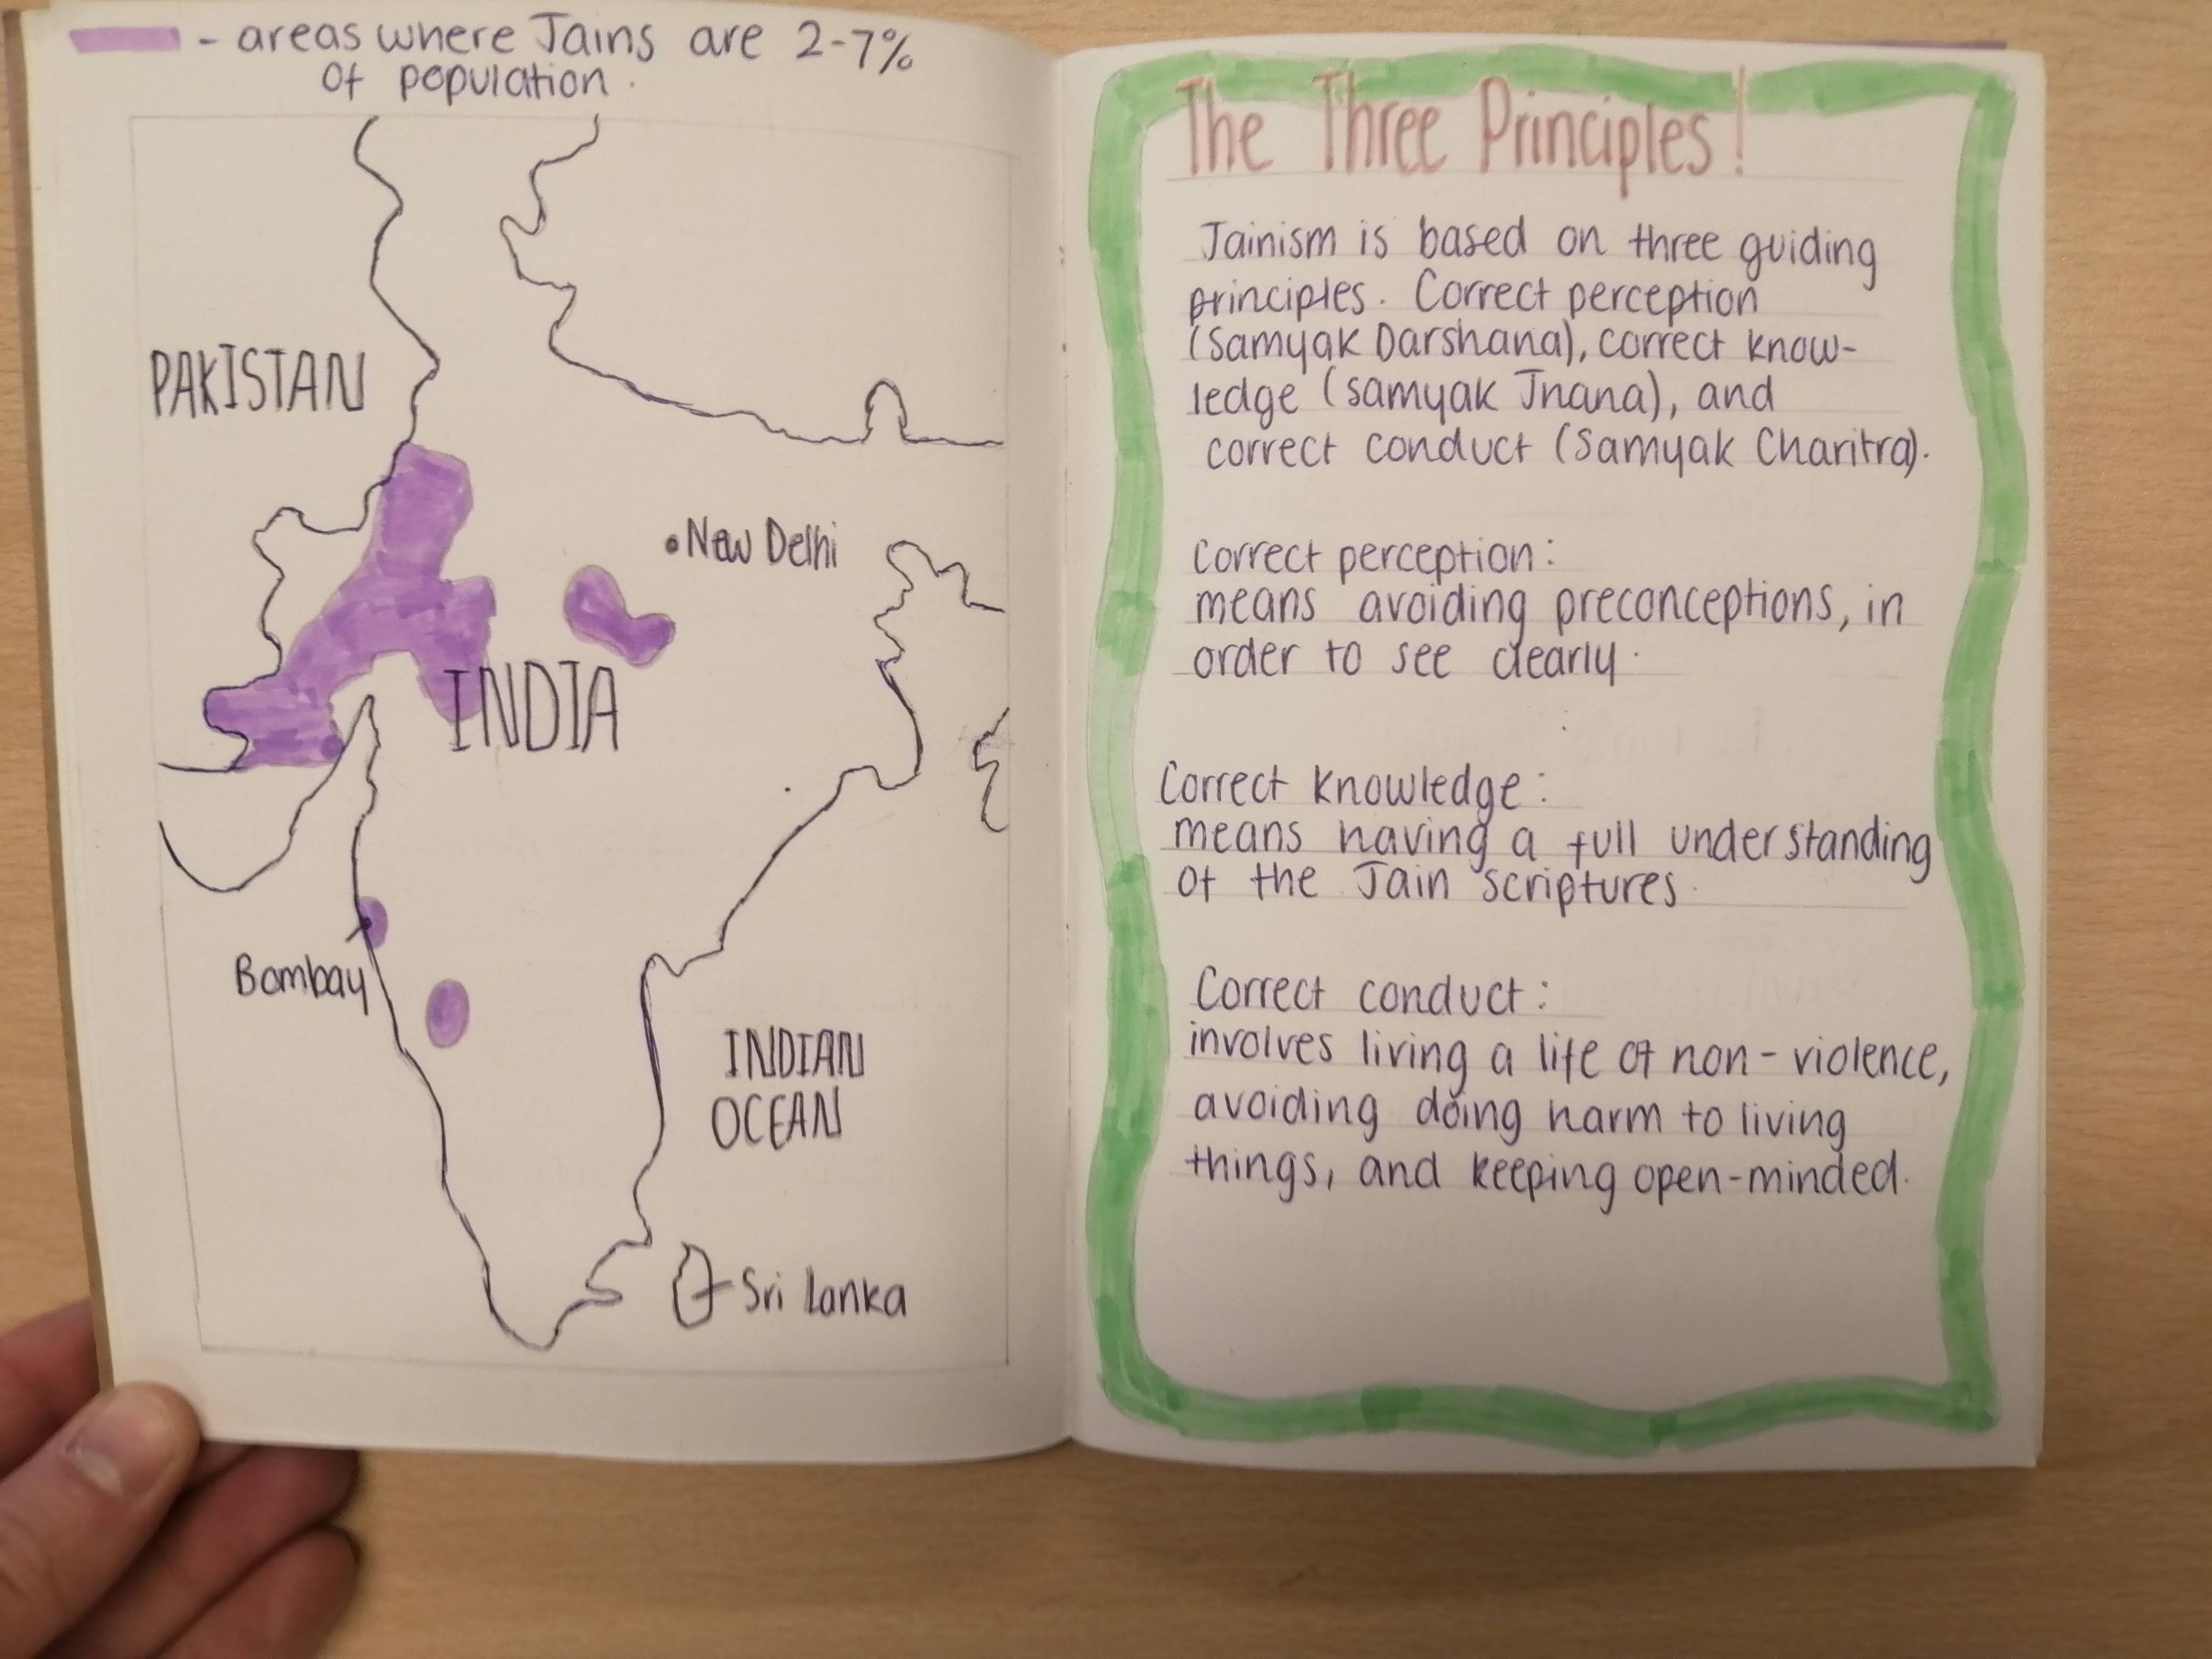 - areas where Jains are 2-7%
of population.
PAKISTAN
New Delhi
INDIA
Bombay
INDIAN
OCEAN
Sri Lanka
The Three Principles!
Jainism is based on three guiding
principles. Correct perception
(Samyak Darshana), correct know-
ledge (samyak Jnana), and
correct conduct (Samyak Charitra).
Correct perception:
means avoiding preconceptions, in
order to see clearly.
Correct knowledge:
means having a full understanding
of the Jain scriptures.
Correct conduct:
involves living a life of non-violence,
avoiding doing harm to living
things, and keeping open-minded.